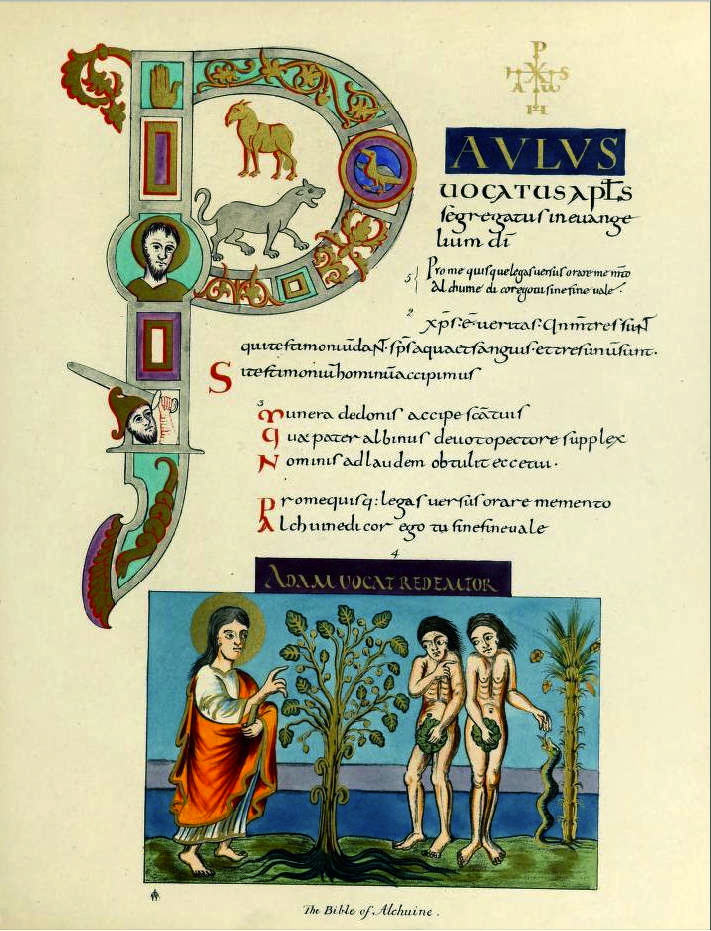 P
X S
A ω
H
PAVLVS
UOCATUS APłS
segregatus in euange
lium dī
5 Pro me quisque legas uersus orare mēnto
Alchuine dicor ego tu sine fine uale.
2
xp̄s: ē ueritas: Qn̄m tres sunt
qui testimoniū dant sp̄s aqua et sanguis. et tres unū sunt.
Si testimoniū hominū accipimus
3
Munera de donis accipe sc̄a tuis
Quæ pater albinus deuoto pectore supplex
Nominis ad laudem obtulit ecce tui.
Pro me quisq: legas uersus orare memento
Alchuine dicor ego tu sine fine uale
4
ADAM UOCAT REDEMTOR
The Bible of Alchuine.